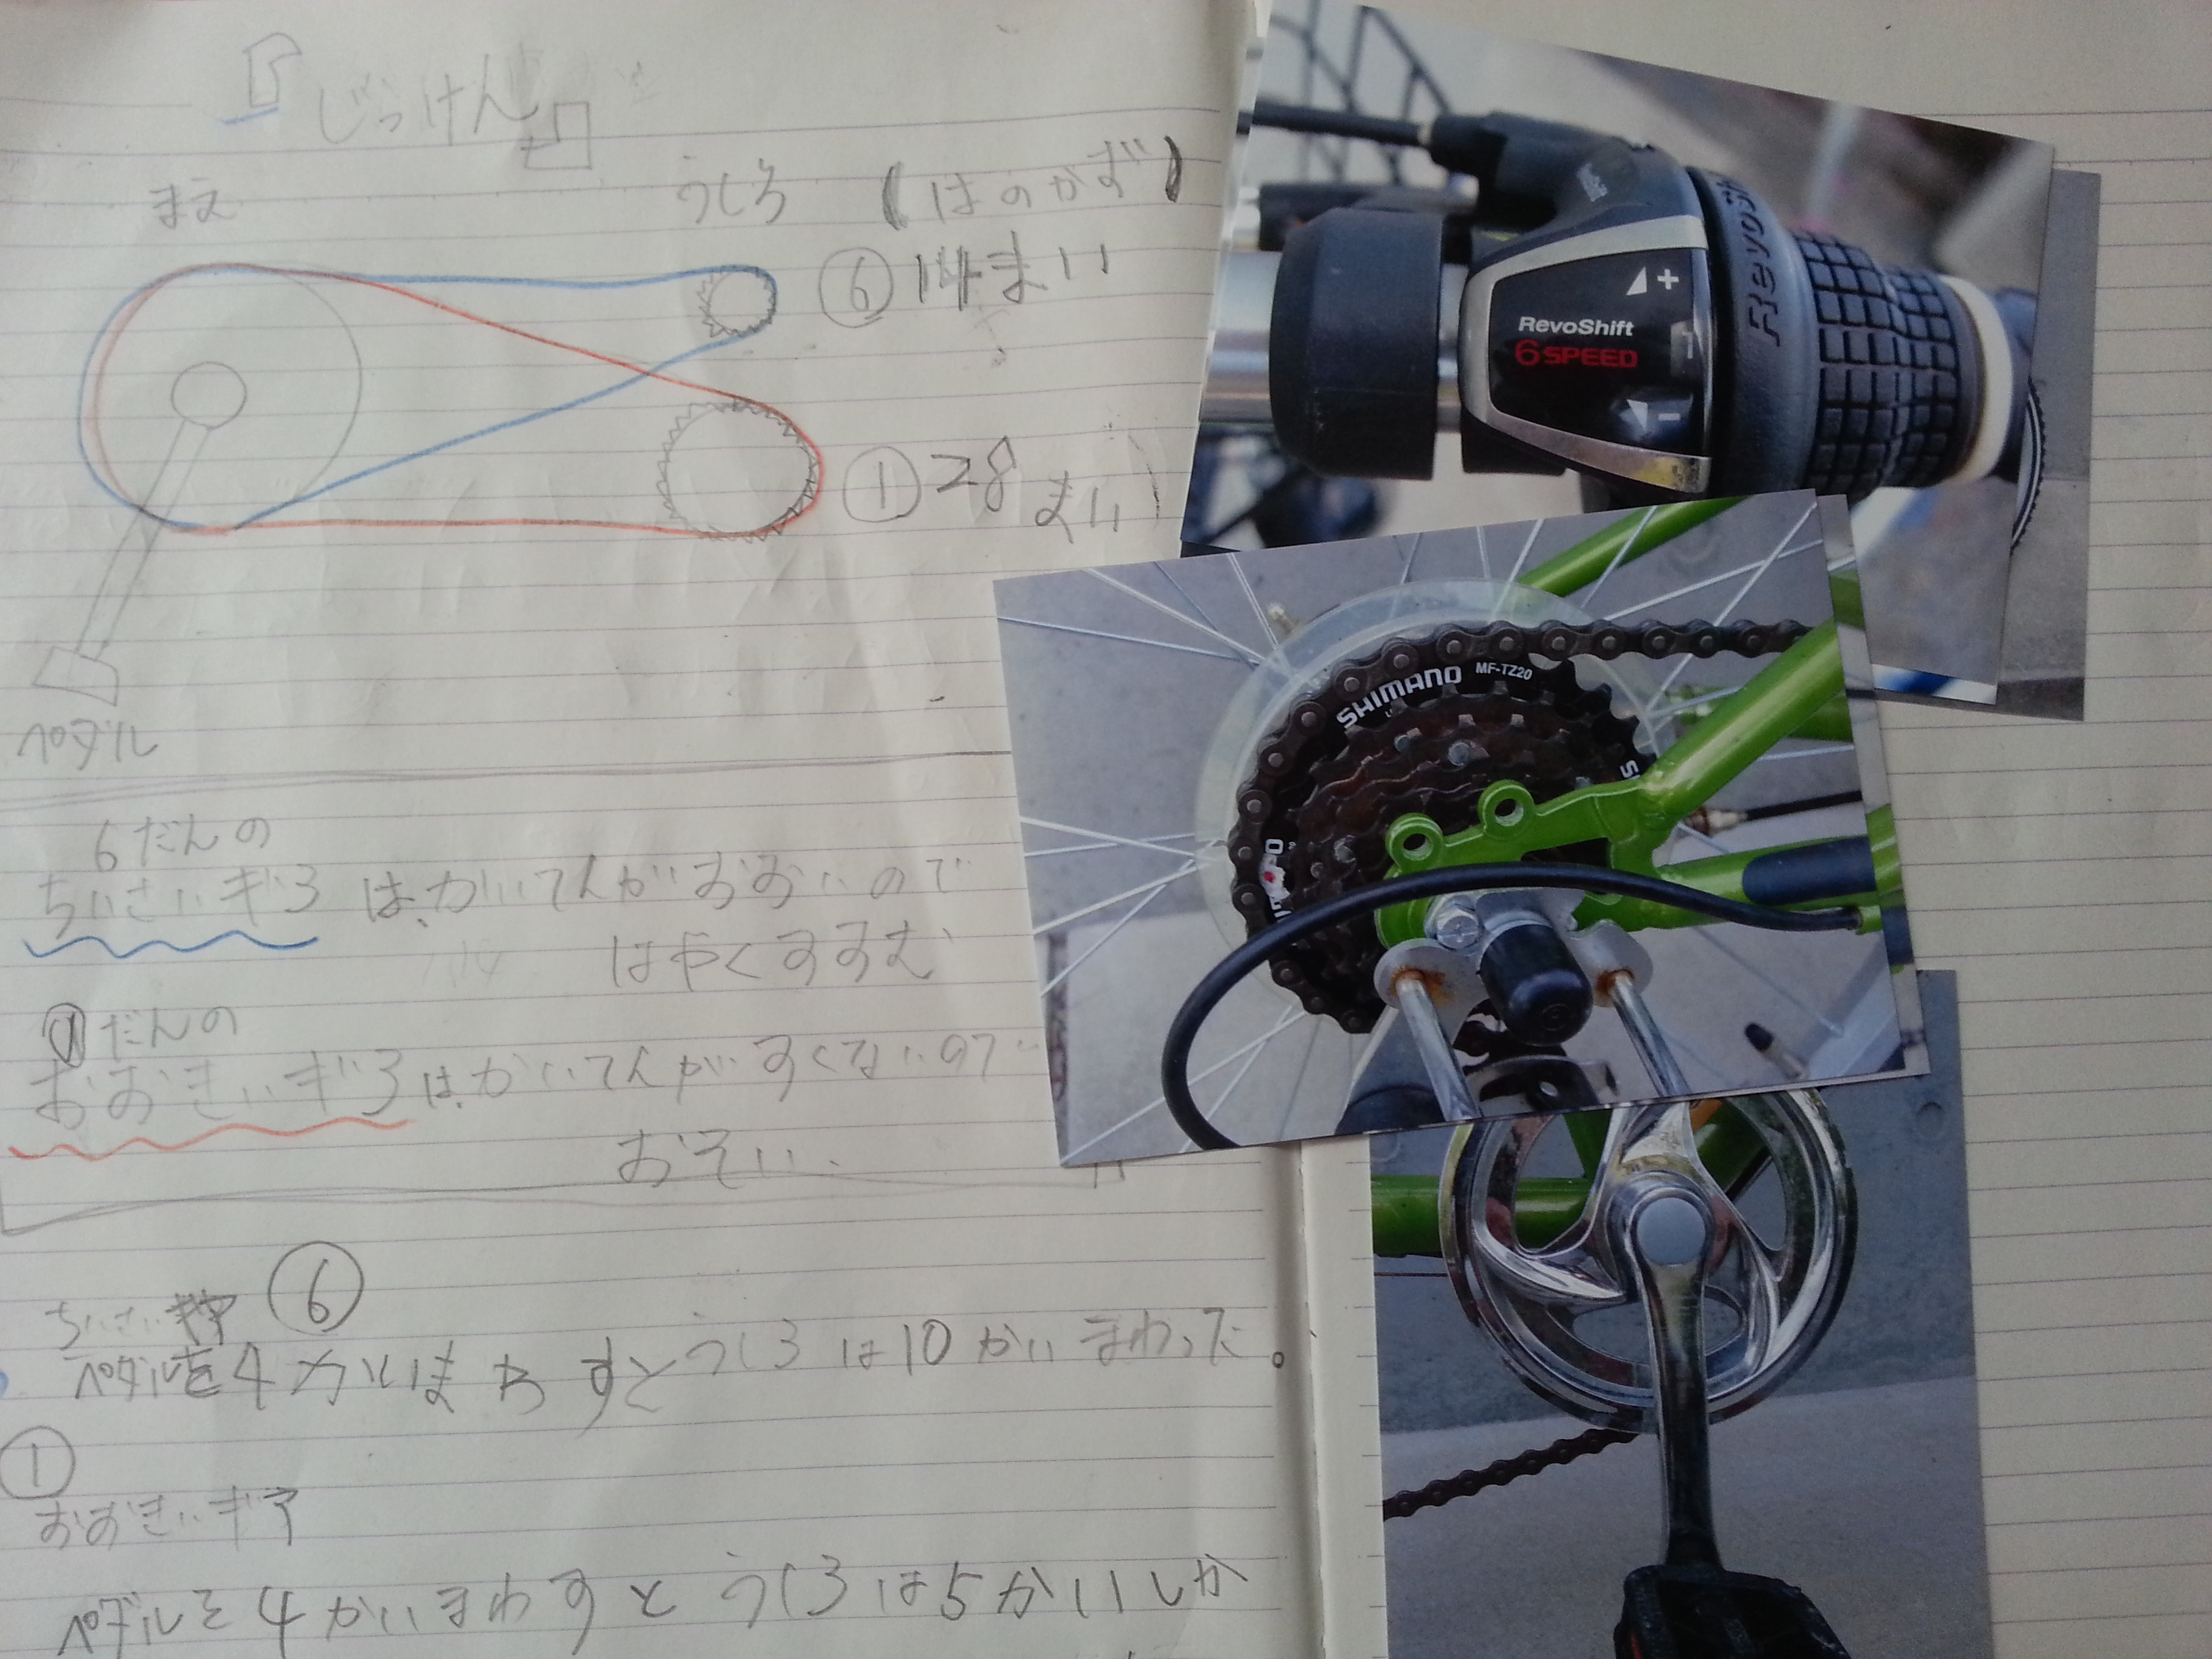 『じっけん』
まえ
うしろ
(はのかず)
⑥ 14まい
① 28まい
ペダル
6だんの
ちいさいギアは、かいてんがおおいので
はやくすすむ
①だんの
おおきいギアは、かいてんがすくないので
おそい。
ちいさい ⑥
ペダルを4かいまわすとうしろは10かいまわった。
①
おおきいギア
ペダルを4かいまわすとうしろは5かいしか
RevoShift
6 SPEED
+
-
RevoSh
SHIMANO MF-TZ20